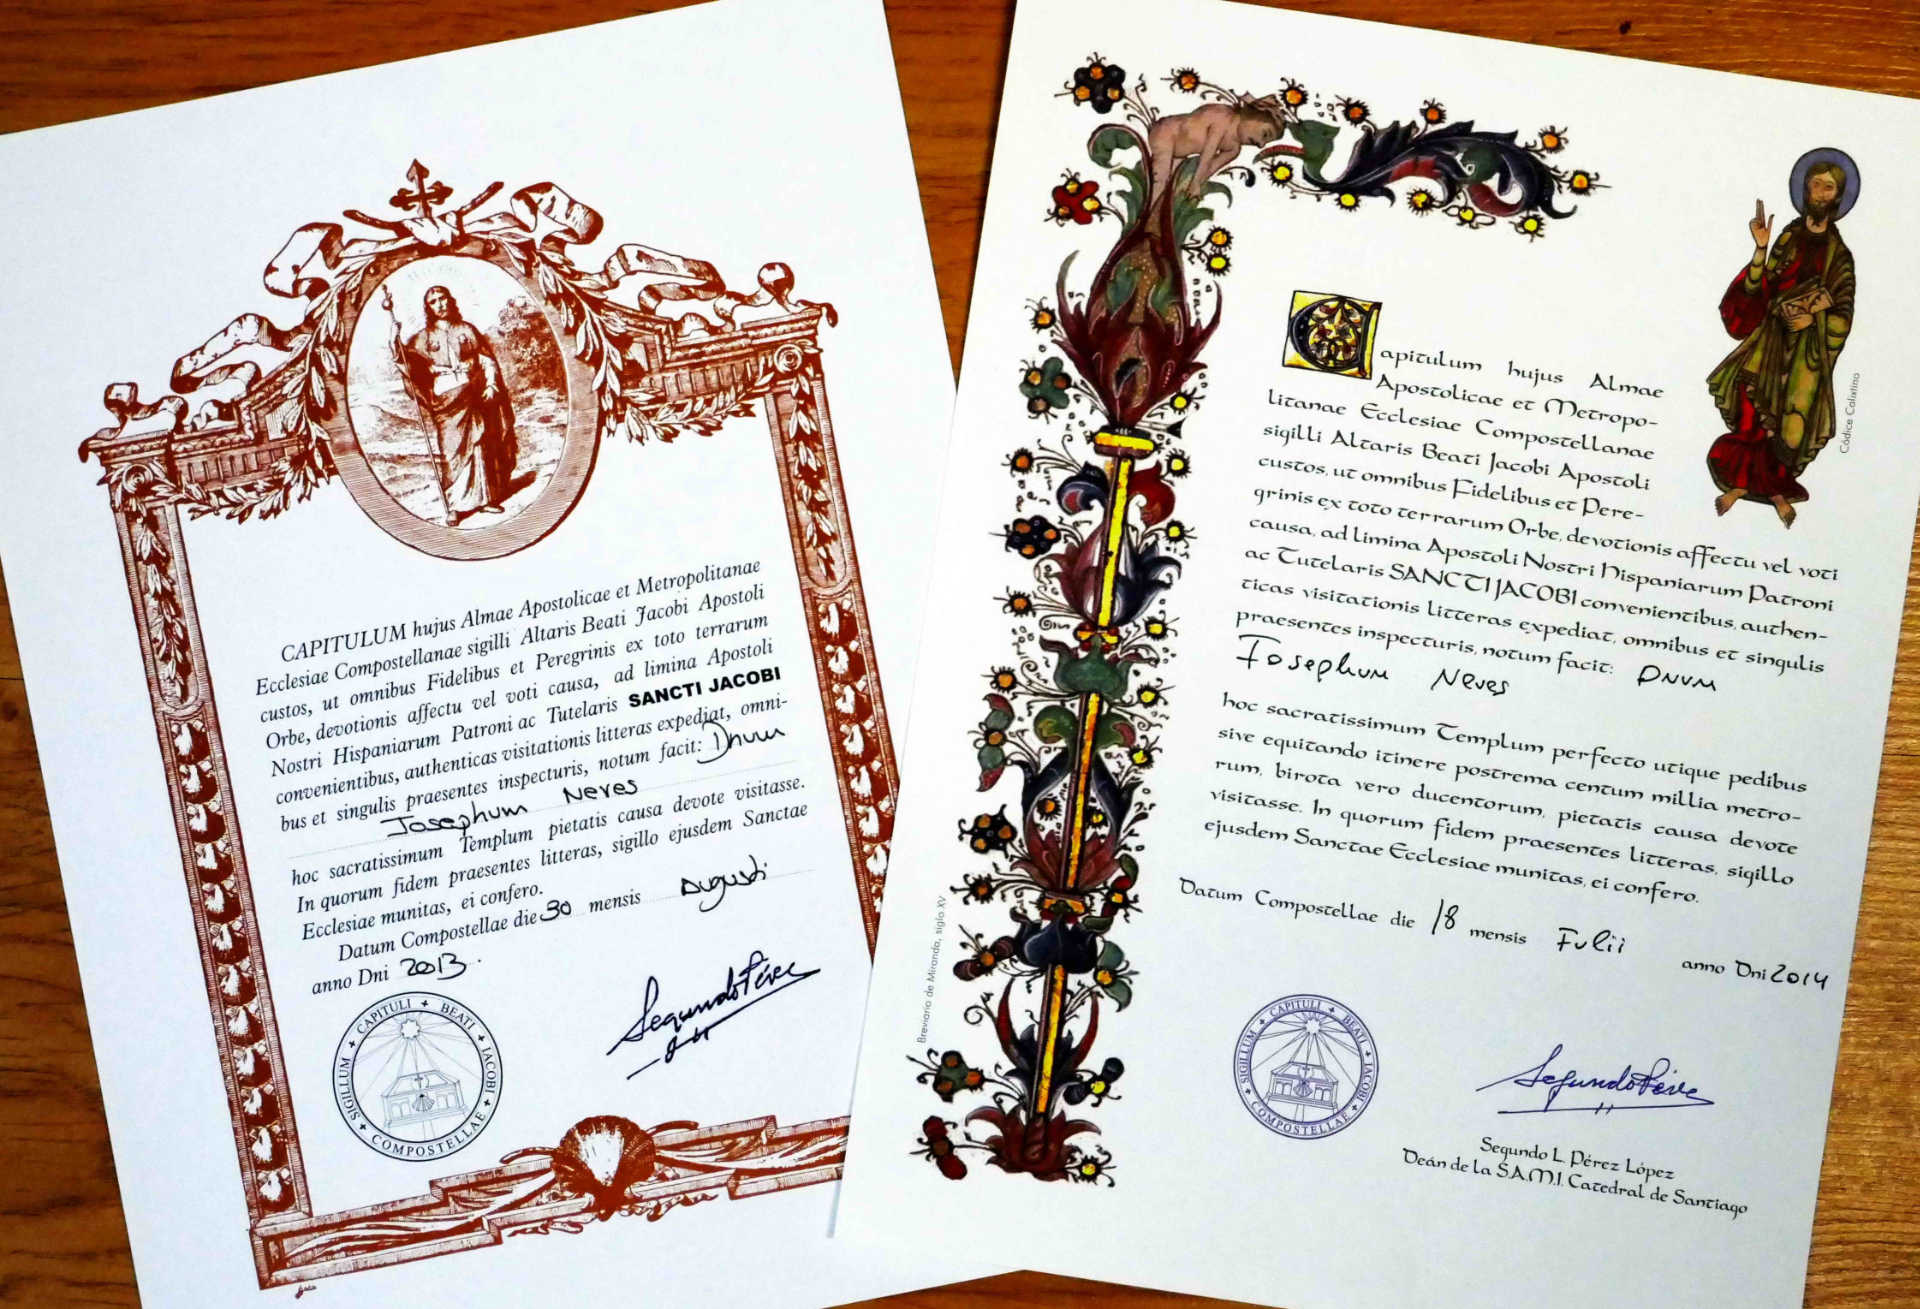 CAPITULUM hujus Almae Apostolicae et Metropolitanae
Ecclesiae Compostellanae sigilli Altaris Beati Jacobi Apostoli
custos, ut omnibus Fidelibus et Peregrinis ex toto terrarum
Orbe, devotionis affectu vel voti causa, ad limina Apostoli
Nostri Hispaniarum Patroni ac Tutelaris SANCTI JACOBI
convenientibus, authenticas visitationis litteras expediat, omni-
bus et singulis praesentes inspecturis, notum facit: Dnum
Josephum Neves
hoc sacratissimum Templum pietatis causa devote visitasse.
In quorum fidem praesentes litteras, sigillo ejusdem Sanctae
Ecclesiae munitas, ei confero.
Datum Compostellae die 30 mensis Augusti
anno Dni 2013.
Segundo Pérez
SIGILLUM + CAPITULI + BEATI + JACOBI + COMPOSTELLAE +
Capitulum hujus Almae
Apostolicae et Metropo-
litanae Ecclesiae Compostellanae
sigilli Altaris Beati Jacobi Apostoli
custos, ut omnibus Fidelibus et Pere-
grinis ex toto terrarum Orbe, devotionis affectu vel voti
causa, ad limina Apostoli Nostri Hispaniarum Patroni
ac Tutelaris SANCTI JACOBI convenientibus, authen-
ticas visitationis litteras expediat, omnibus et singulis
praesentes inspecturis, notum facit: Dnum
Josephum Neves
hoc sacratissimum Templum perfecto utique pedibus
sive equitando itinere postrema centum millia metro-
rum, birota vero ducentorum, pietatis causa devote
visitasse. In quorum fidem praesentes litteras, sigillo
ejusdem Sanctae Ecclesiae munitas, ei confero.
Datum Compostellae die 18 mensis Julii
anno Dni 2014
SIGILLUM + CAPITULI + BEATI + JACOBI + COMPOSTELLAE +
Segundo Pérez
Segundo L. Pérez López
Deán de la S.A.M.I. Catedral de Santiago
Breviario de Miranda, siglo XV
Códice Calixtino